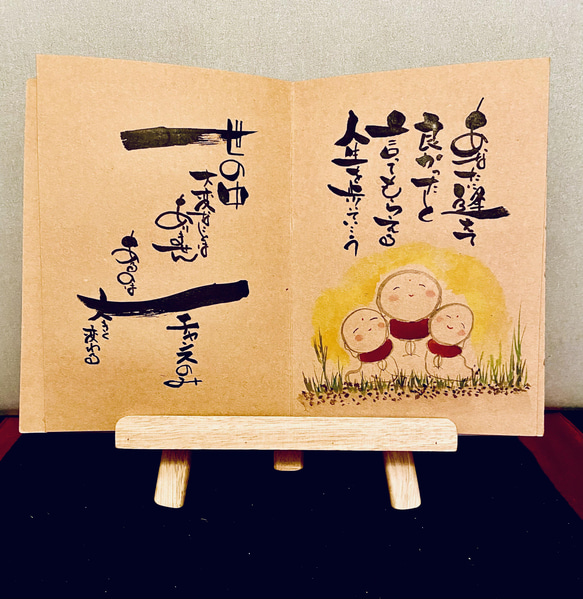 あなたに逢えて
良かったと
言ってもらえる
人生を歩いていこう
世の中
大変なことは
ありません
あるのは
大きく
変わる
チャンスのみ